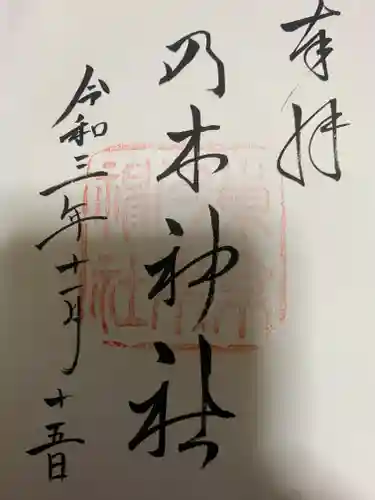 奉拝
乃木神社
令和三年十一月十五日